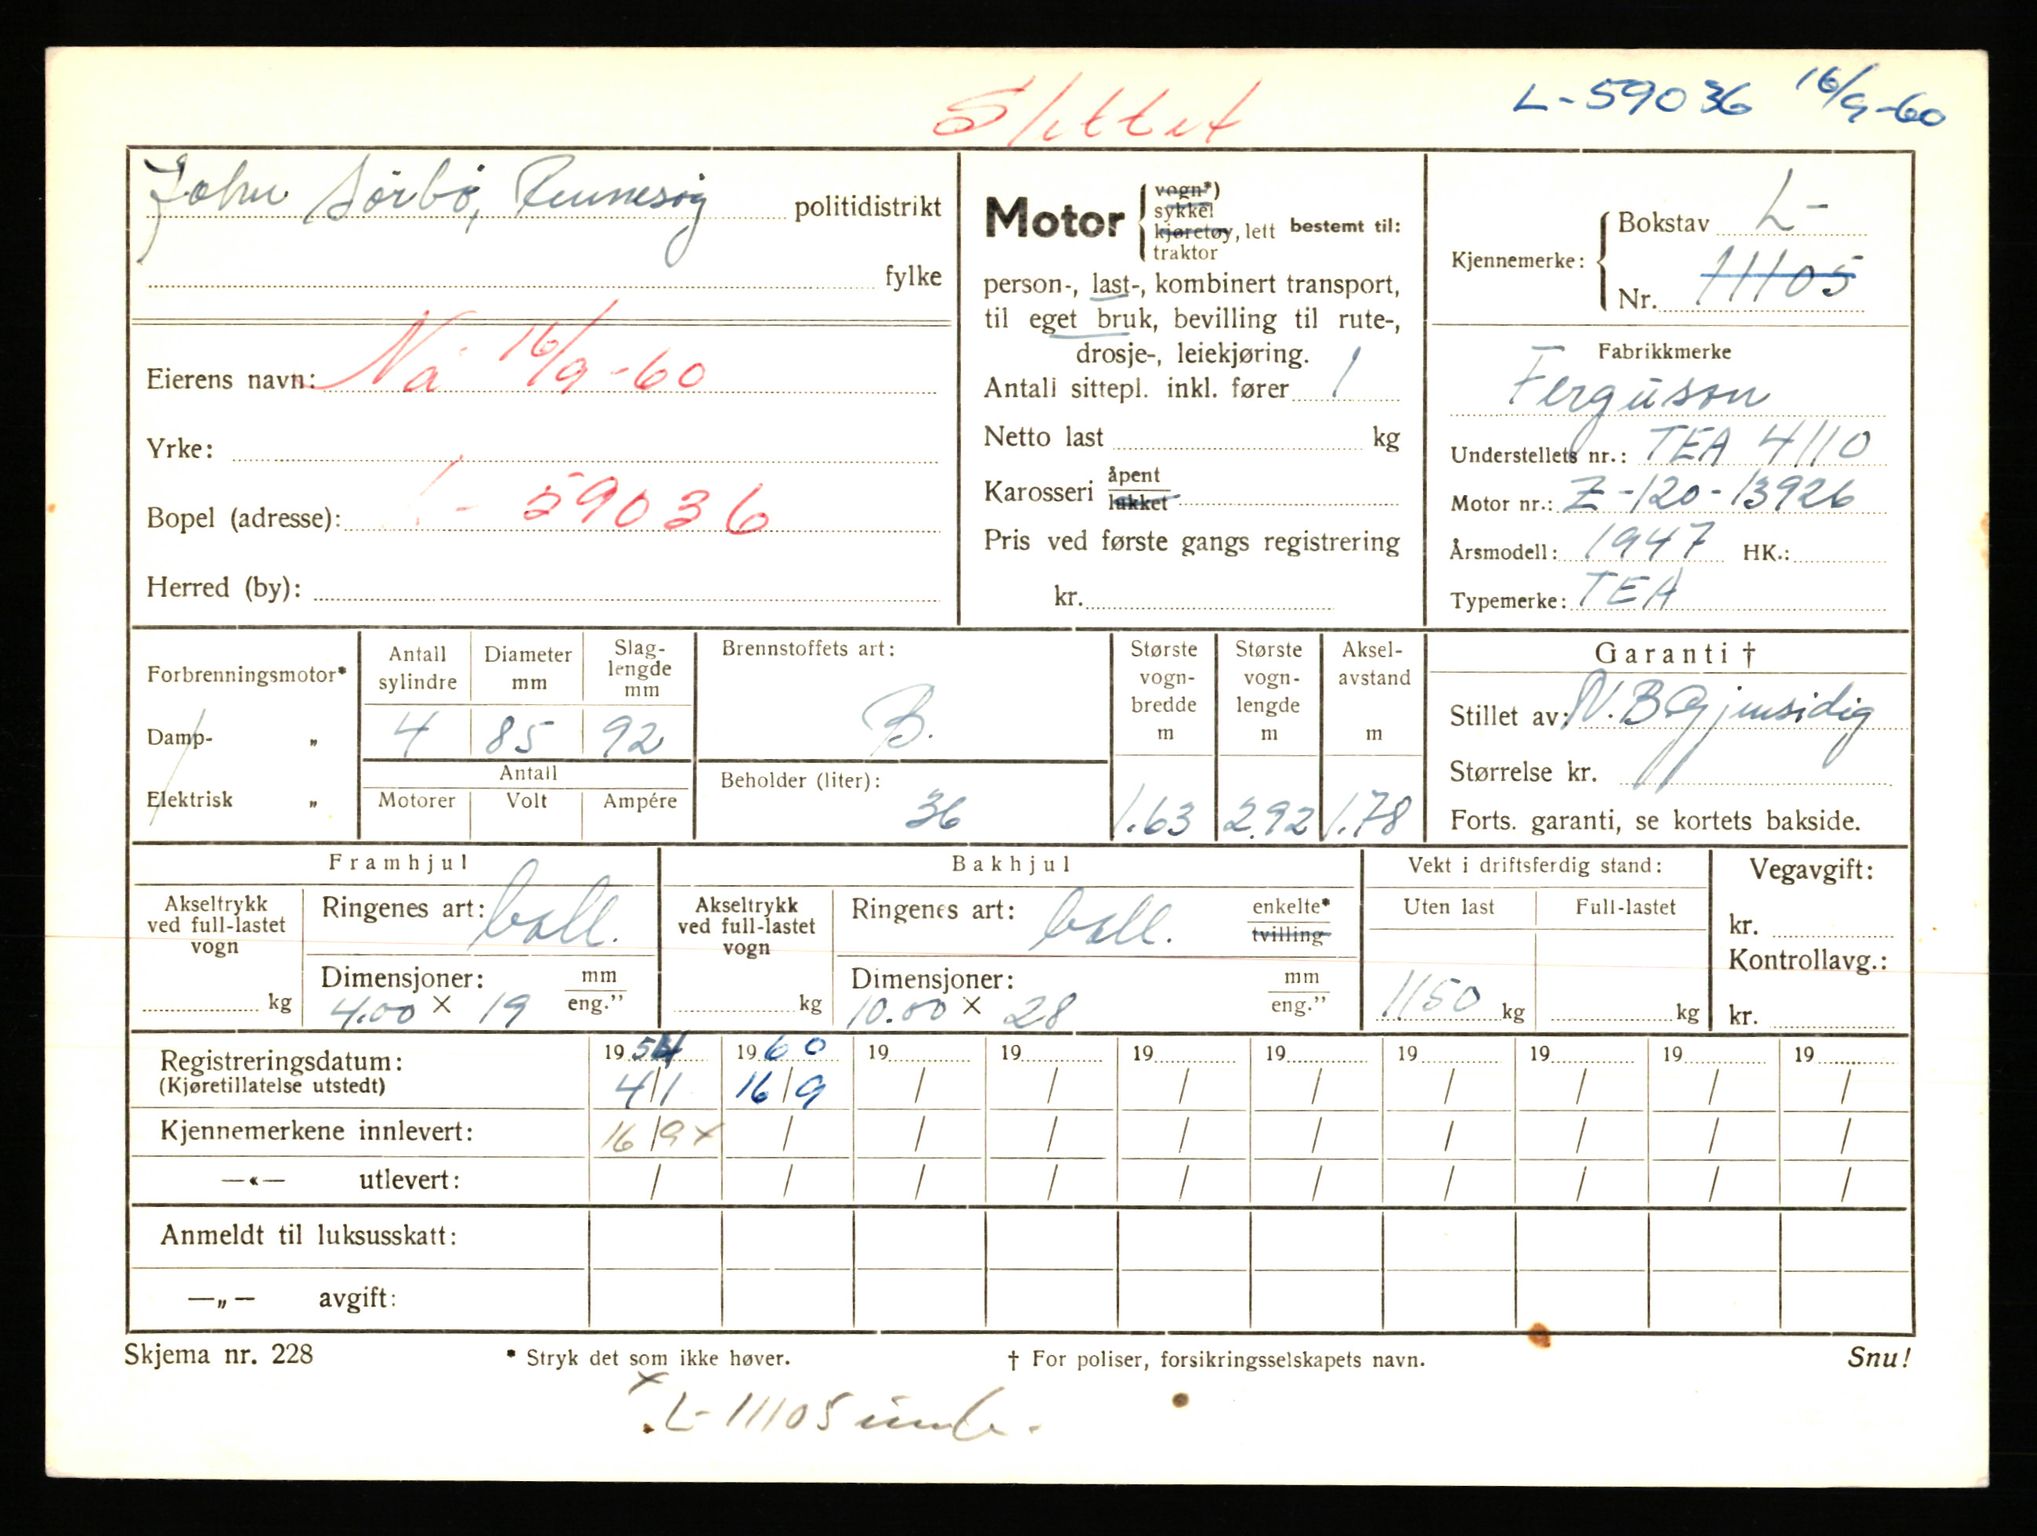 Slettet
L-59036 16/9-60
John Sörbö, Rennesøy politidistrikt
fylke
Eierens navn: Nå 16/9-60
Yrke:
Bopel (adresse): L- 59036
Herred (by):
Motor vogn*) sykkel kjøretøy, lett traktor bestemt til:
person-, last-, kombinert transport,
til eget bruk, bevilling til rute-,
drosje-, leiekjøring.
Antall sittepl. inkl. fører 1
Netto last kg
Karosseri åpent lukket
Pris ved første gangs registrering
kr.
Kjennemerke: Bokstav L-
Nr. 11105
Fabrikkmerke
Ferguson
Understellets nr.: TEA 4110
Motor nr.: Z-120-13926
Årsmodell: 1947 HK.:
Typemerke: TEA
Forbrenningsmotor*
Damp- „
Elektrisk „
Antall sylindre 4
Diameter mm 85
Slag-lengde mm 92
Antall
Motorer Volt Ampére
Brennstoffets art:
B.
Beholder (liter):
36
Største vogn-bredde m 1.63
Største vogn-lengde m 2.92
Aksel-avstand m 1.78
Garanti †
Stillet av: N.B Gjensidig
Størrelse kr.
Forts. garanti, se kortets bakside.
Framhjul
Akseltrykk ved full-lastet vogn
kg
Ringenes art: ball.
Dimensjoner: mm eng.”
4.00 × 19
Bakhjul
Akseltrykk ved full-lastet vogn
kg
Ringenes art: ball. enkelte* tvilling
Dimensjoner: mm eng.”
10.00 × 28
Vekt i driftsferdig stand:
Uten last Full-lastet
1150 kg kg
Vegavgift:
kr.
Kontrollavg.:
kr.
Registreringsdatum: 1954 1960 19 19 19 19 19 19 19 19
(Kjøretillatelse utstedt) 4/1 16/9 / / / / / / / /
Kjennemerkene innlevert: 16/9x / / / / / / / / /
—«— utlevert: / / / / / / / / / /
Anmeldt til luksusskatt:
—„— avgift:
Skjema nr. 228 * Stryk det som ikke høver. † For poliser, forsikringsselskapets navn. Snu!
x L-11105